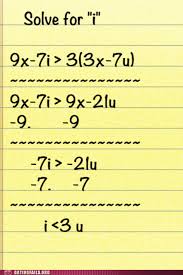 Solve for "i"
9x-7i > 3(3x-7u)
~~~~~~~~~~~~~~~
9x-7i > 9x-21u
-9. -9
~~~~~~~~~~~~~~~
-7i > -21u
-7. -7
~~~~~~~~~~~~~~~
i <3 u